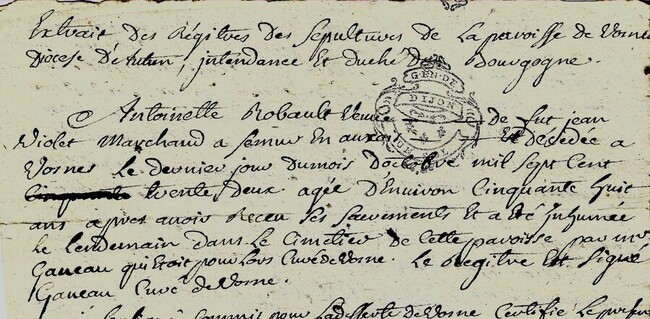 Extrait Des Régitres Des Sepultures De La paroisse de Vosne
Diocese D'Autun, intendance Et duché De Bourgogne.
GEN. DE
DIJON
Antoinette Robault Veuve De fut jean
Violet Marchand a Semur En auxois Est décédée a
Vosnes Le dernier jour Dumois Doctobre mil Sept Cent
Cinquante trente Deux agée D'Environ Cinquante huit
ans apres avoir Receu Ses Sacrements Et a Eté Inhumée
Le lendemain Dans Le Cimetier De Cette paroisse par mr
Ganeau qui Etoit pour Lors Curé de Vosne. Le Regitre Est Signé
Ganeau Curé de Vosne.
commis pour La desserte de Vosne Certifie Le present